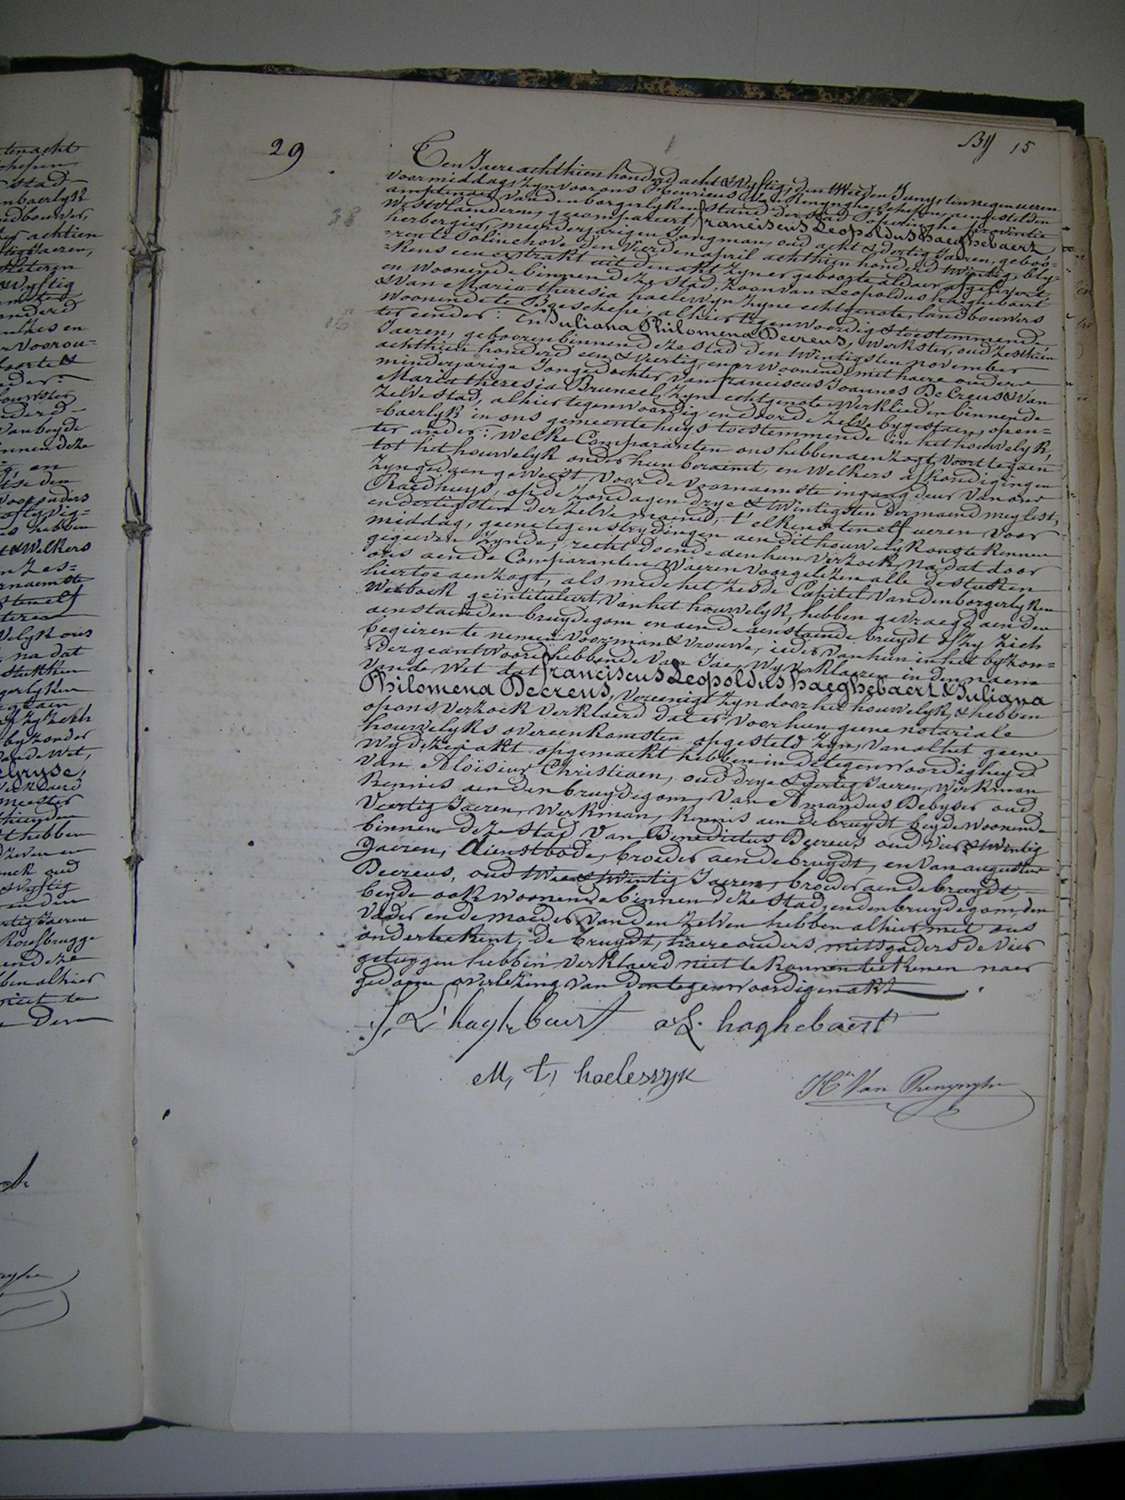 29
Bij 15
38
Ten Jaere achthien honderd acht & Vyftig, den twee den Juny, ten negen ueren
voormiddag, zyn voor ons Henricus Van Renynghe, schepen, aengestelden
amptenaer van den borgerlyken stand der stad Poperinghe provintie
Westvlaenderen, gecompareert franciscus Leopoldus haeghebaert,
herbergier, meerderjarigen Jongman, oud acht & dertig Jaeren, geboo-
ren te Polinchove den Veerden april achthien honderd twintig, bly-
kens een extrakt uit den akt zyner geboorte aldaer afgelevert,
en Woonende binnen deze stad, Zoon van Leopoldus haeghebaert
& Van Maria theresia hoelewyn zyne echtgenote, landbouwers
Woonende te Boeschepe, alhier tegenwoordig & toestemmende
ter eender: En Juliana Philomena Decreus, Werkster, oud Zesthien
Jaeren, gebooren binnen deze stad den twintigsten november
achthien honderd een & Veertig, en er Woonende met haere ouders
minderjarige Jonge dochter van franciscus Joannes De Creus & Van
Maria theresia Bruneel zyne echtgenote Werklieden binnen de
Zelve stad, alhier tegenwoordig en door de Zelve bygestaen, open-
baerlyk in ons gemeente huys toestemmende in het houwelyk,
ter ander: Welke Comparanten ons hebben aenzogt Voort te gaen
tot het houwelyk onder hun beraemt, en Welkers afkondigingen
Zyn gedaen geweest, Voor de Voornaemste ingang deur van ons
Raedhuys, op de Zondagen drye & twintigsten der maend mey lest,
en dertigsten der zelve maend, t'elkens ten elf ueren voor-
middag, geene tegenstrydingen aen dit houwelyk ons te kennen
gegeven zynde, recht doende aen hun Verzoek, Na dat door
ons aen de Comparanten Waeren voorgelezen alle de stukken
hier toe aenzogt, als mede het Zesde Capitel Van den borgerlyken
Wetboek geïntituleert Van het houwelyk, hebben gevraegd aen den
aenstaenden bruydegom en aen de aenstaende bruydt of zy Zich
begeiren te nemen Voor man & Vrouwe, ieder Van hun in het byzon-
der geantwoord hebbende Van Jae, Wy verklaeren in den naem
Van de Wet dat franciscus Leopoldus haeghebaert & Juliana
Philomena Decreus, Vereenigt zyn door het houwelyk, & hebben
op ons Verzoek Verklaerd dat er Voor hun geene notariale
houwelyks overeenkomsten opgesteld zyn, Van al het geene
Wy dezen akt opgemaekt hebben in de tegenwoordigheyd
Van Aloïsius Christiaen, oud drye & dertig Jaeren, Werkman
Kennis aen den bruydegom, Van Amandus Debyser oud
Veertig Jaeren, Werkman, Kennis aen de bruydt beyde Woonende
binnen deze stad, Van Benedictus Decreus oud Vier & twintig
Jaeren, dienstbode, broeder aen de bruydt, en Van augustus
Decreus, oud twintig Jaeren, broeder aen de bruydt,
beyde ook woonende binnen deze stad, en den bruydegom, den
Vader en de moeder van den Zelven hebben alhier met ons
onderteekent, de bruydt, haere ouders, mitsgaders de Vier
getuygen hebben Verklaerd niet te konnen teekenen naer
gedaene overlezing van den tegenwoordigen akt
f. L. haeghebaert L. haghebaert
M, t, hoelewyk
Hri Van Renynghe